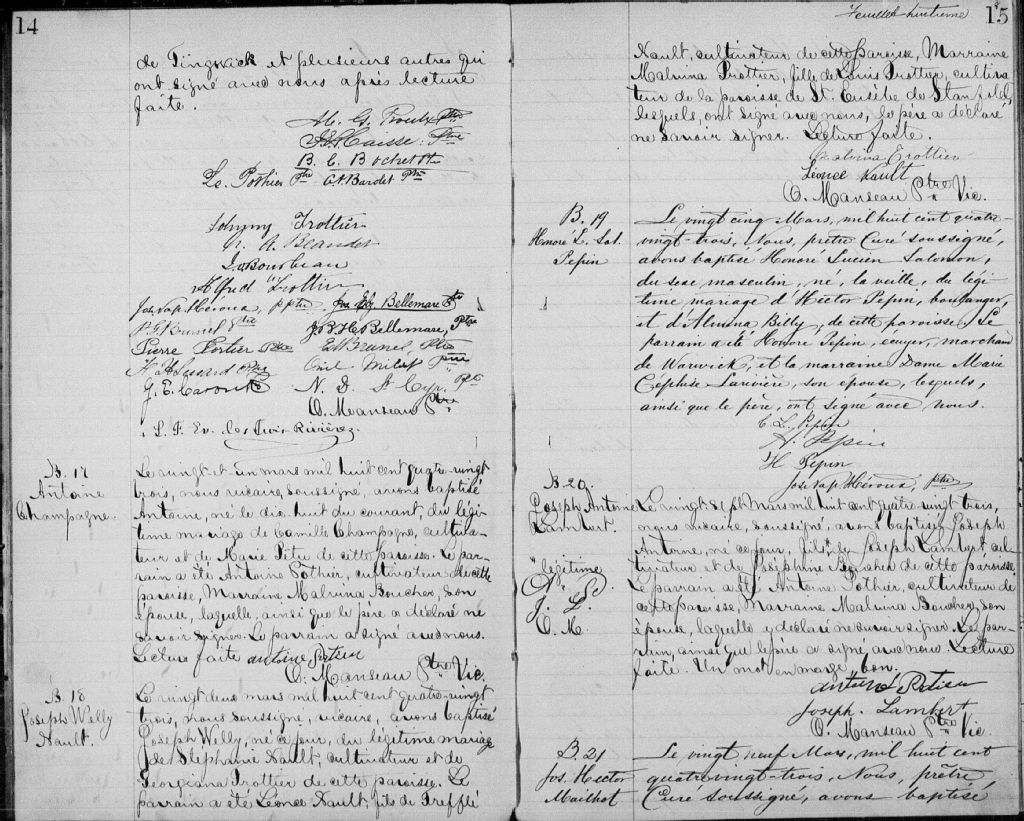 14
de Tingwick et plusieurs autres qui
ont signé avec nous après lecture
faite.
M. G. Proulx Ptre
Caisse. Ptre
B. C. Bochet Ptre
Ls. Pothier Ptre C. A. Bardet Ptre
Johnny Trottier
A. Beaudet
J. Bourbeau
Alfred Trottier
Jos. Nap. Héroux, pptre Jos Ely Bellemare Ptre
Brunel Ptre J. B. H. Bellemare, Ptre
Pierre Portier Ptre E. Brunel Ptre
H. A. Lessard Ptre Milot Ptre
J. E. N. D. St Cyr. Ptre
O. Manseau Ptre
† L. F. Ev. des Trois Rivières
B. 17
Antoine
Champagne.
Le vingt et un mars mil huit cent quatre-vingt
trois, nous vicaire, soussigné, avons baptisé
Antoine, né le dix huit du courant, du légi-
time mariage de Camille Champagne, cultiva-
teur et de Marie Pétru de cette paroisse. Le par-
rain a été Antoine Pothier, cultivateur de cette
paroisse, Marraine Malvina Boucher, son
épouse, laquelle, ainsi que le père a déclaré ne
savoir signer. Le parrain a signé avec nous.
Lecture faite antoine
O. Manseau Ptre Vic.
B. 18
Joseph Welly
Nault.
Le vingt deux mars mil huit cent quatre-vingt
trois, nous soussigné, vicaire, avons baptisé
Joseph Welly, né ce jour, du légitime mariage
de Stéphanie Nault, cultivateur et de
Georgiana Trottier de cette paroisse. Le
parrain a été Léonce Nault, fils de Trefflé
Feuillet huitième 15
Nault, cultivateur de cette paroisse, Marraine
Malvina Trottier, fille de Louis Trottier, cultiva-
teur de la paroisse de St. Eusèbe de Stanfold,
lesquels, ont signé avec nous, le père a déclaré
ne savoir signer. Lecture faite.
Malvina Trottier
Léonce Nault
O. Manseau Ptre Vic.
B. 19
Honoré L. Sal.
Pepin
Le vingt cinq Mars, mil huit cent quatre-
vingt-trois, Nous, prêtre Curé soussigné,
avons baptisé Honoré Lucien Salomon,
du sexe masculin, né, la veille, du légi-
time mariage d'Hector Pepin, boulanger,
et d'Almina Billy, de cette paroisse. Le
parrain a été Honoré Pepin, écuyer, marchand
de Warwick, et la marraine Dame Marie
Céphise Larivière, son épouse, lesquels,
ainsi que le père, ont signé avec nous.
C. L. Pepin
H. Pepin
H. Pepin
Jos. Nap. Héroux, ptre
B. 20.
Joseph Antoine
Lambert.
"légitime
N. P.
J. L.
O. M.
Le vingt sept Mars mil huit cent quatre-vingt trois,
nous vicaire, soussigné, avons baptisé Joseph
Antoine, né ce jour, fils de Joseph Lambert cul-
tivateur et de Joséphine Boucher de cette paroisse.
Le parrain a été Antoine Pothier, cultivateur de
cette paroisse, Marraine Malvina Boucher, son
épouse, laquelle a déclaré ne savoir signer. Le par-
rain, ainsi que le père a signé avec nous. Lecture
faite. Un mot en marge, bon.
antoine
Joseph. Lambert
O. Manseau Ptre Vic.
B. 21
Jos. Hector
Mailhot
Le vingt neuf Mars, mil huit cent
quatre vingt-trois, Nous, prêtre,
Curé soussigné, avons baptisé